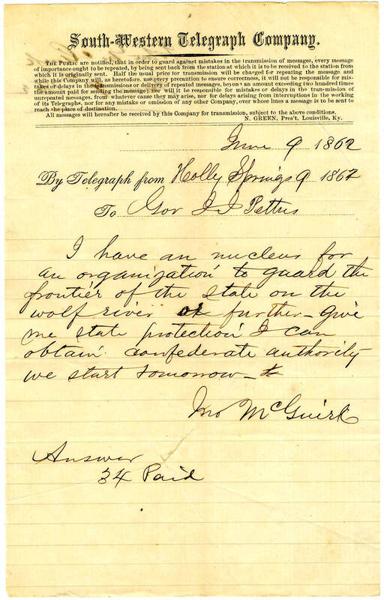 South-Western Telegraph Company.
THE PUBLIC are notified, that in order to guard against mistakes in the transmission of messages, every message
of importance ought to be repeated, by being sent back from the station at which it is to be received to the station from
which it is originally sent. Half the usual price for transmission will be charged for repeating the message and
while this Company will, as heretofore, use every precaution to ensure correctness, it will not be responsible for mis-
takes or delays in the transmission or delivery of repeated messages, beyond an amount exceeding two hundred times
the amount paid for sending the message; nor will it be responsible for mistakes or delays in the transmission of
unrepeated messages, from whatever cause they may arise, nor for delays arising from interruptions in the working
of its Telegraphs, nor for any mistake or omission of any other Company, over whose lines a message is to be sent to
reach the place of destination.
All messages will hereafter be received by this Company for transmission, subject to the above conditions.
N. GREEN, Pres't, Louisville, Ky.
June 9 1862
By Telegraph from Holly Springs 9 1862
To Gov J J Pettus
I have an nucleus for
an organization to guard the
frontier of the state on the
wolf river or further - give
me state protection I can
obtain confederate authority
we start tomorrow -
Jno McGuirk
Answer
34 Paid